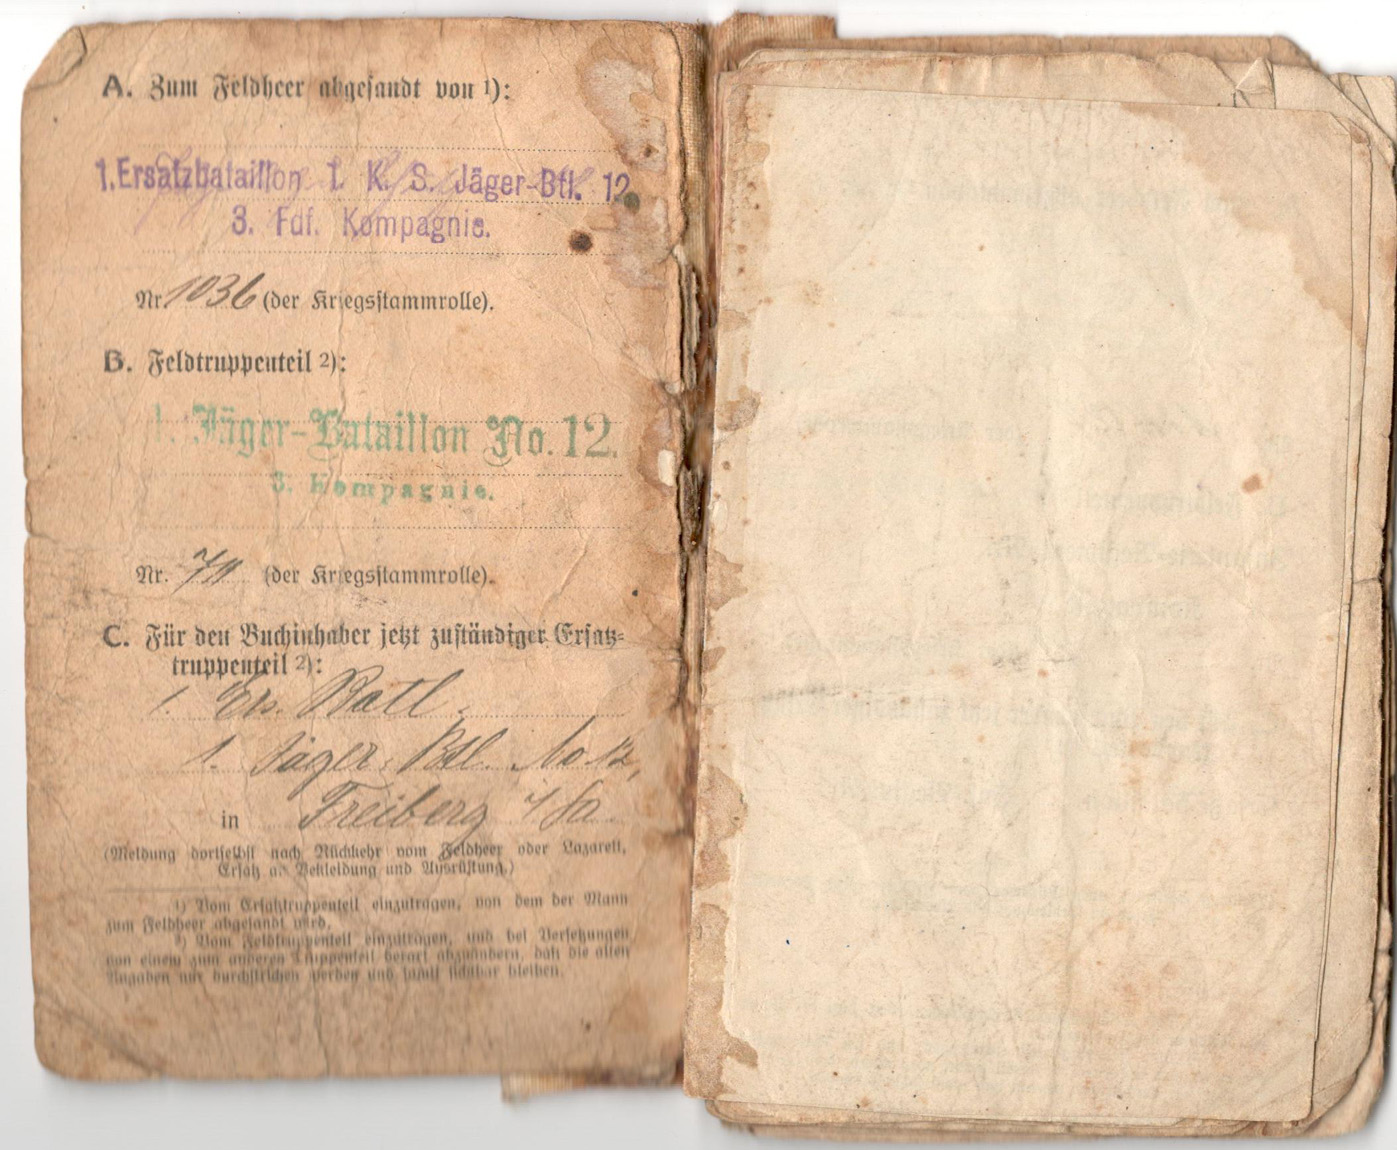 A. Zum Feldheer abgesandt von 1):
1. Ersatzbataillon 1. K. S. Jäger-Btl. 12
3. Fdf. Kompagnie.
Nr. 1036 (der Kriegsstammrolle).
B. Feldtruppenteil 2):
1. Jäger-Bataillon No. 12.
3. Kompagnie.
Nr. 711 (der Kriegsstammrolle).
C. Für den Buchinhaber jetzt zuständiger Ersatz-
truppenteil 2):
1. Ers. Batl.
1. Jäger. Btl. No 12,
in Freiberg i/Sa.
(Meldung dortselbst nach Rückkehr vom Feldheer oder Lazarett,
Ersatz an Bekleidung und Ausrüstung.)
1) Vom Ersatztruppenteil einzutragen, von dem der Mann
zum Feldheer abgesandt wird.
2) Vom Feldtruppenteil einzutragen, und bei Versetzungen
von einem zum anderen Truppenteil derart abzuändern, daß die alten
Angaben nur durchstrichen werden und somit sichtbar bleiben.